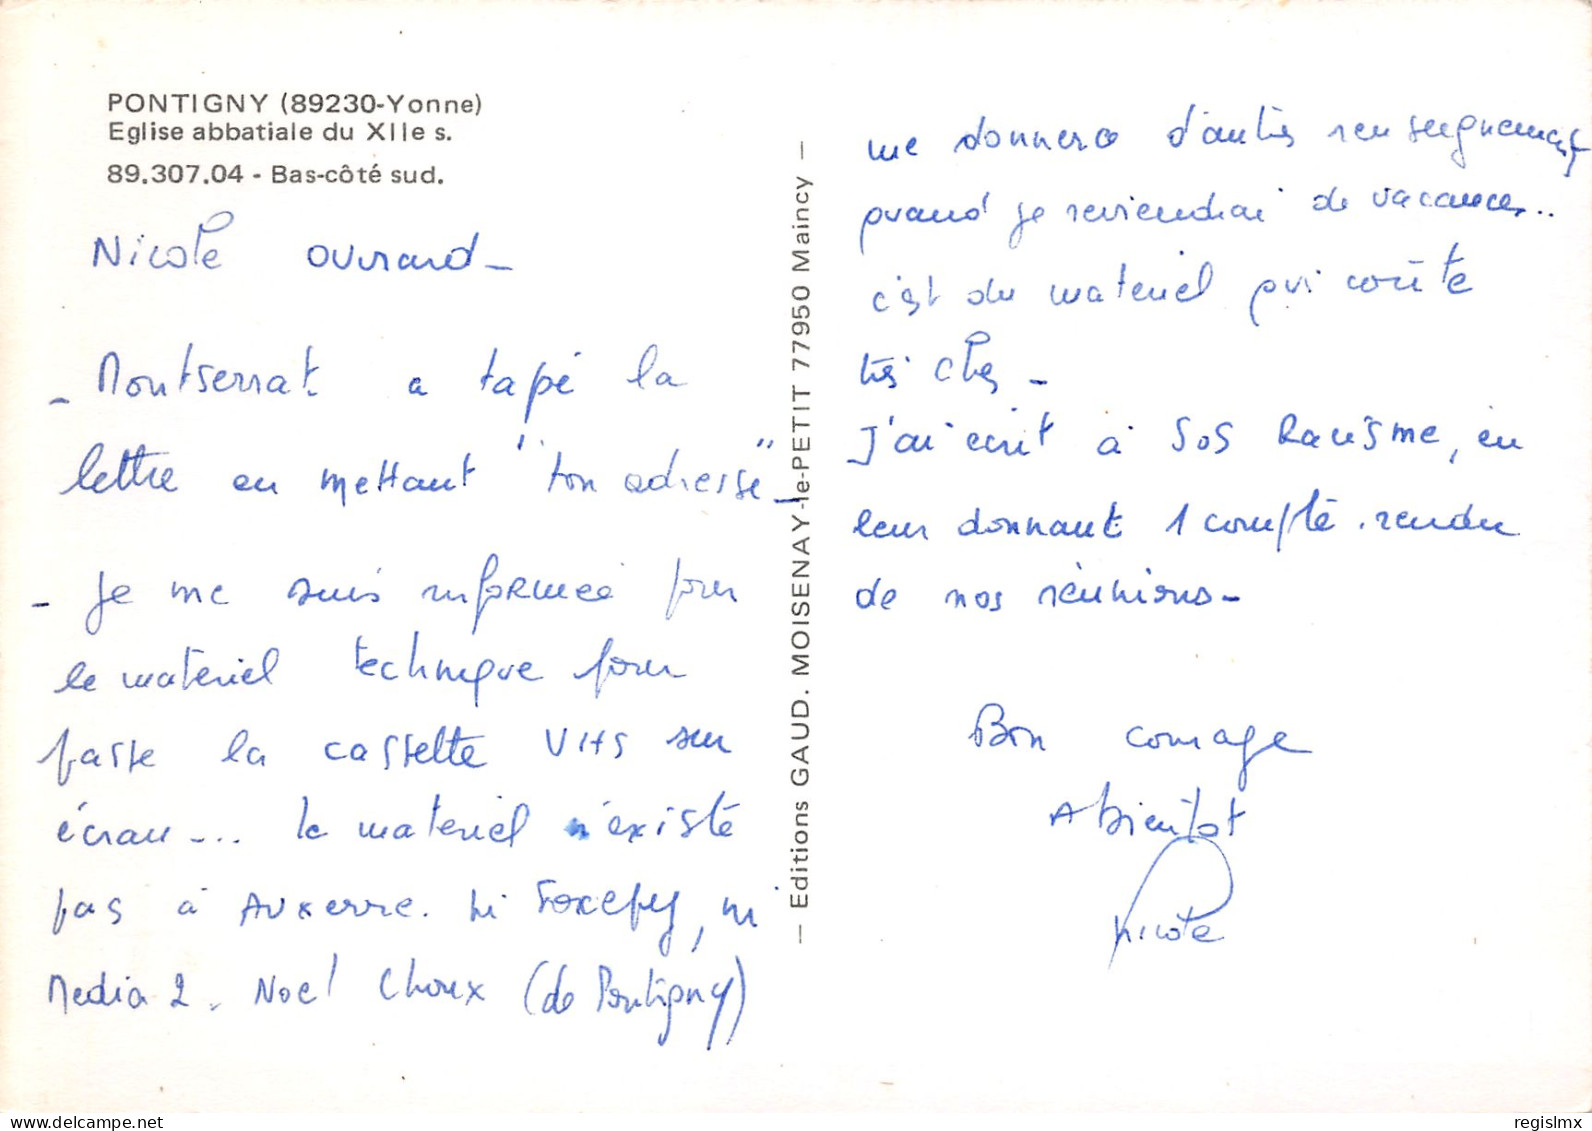 PONTIGNY (89230-Yonne)
Eglise abbatiale du XIIe s.
89.307.04 - Bas-côté sud.
Nicole Ouvrard -
- Montserrat a tapé la
lettre en mettant "ton adresse" -
- Je me suis informée pour
le matériel technique pour
passer la cassette VHS sur
écran -... le matériel n'existe
pas à Auxerre. ni, ni
Media 2. Noël Choux (de Pontigny)
- Editions GAUD. MOISENAY-le-PETIT 77950 Maincy -
me donnera d'autres renseignements
quand je reviendrai de vacances..
c'est du matériel qui coûte
très cher -
J'ai écrit à SOS Racisme, en
leur donnant 1 compte.rendu
de nos réunions -
Bon courage
A bientôt
Nicole
delcampe.net
regislmx